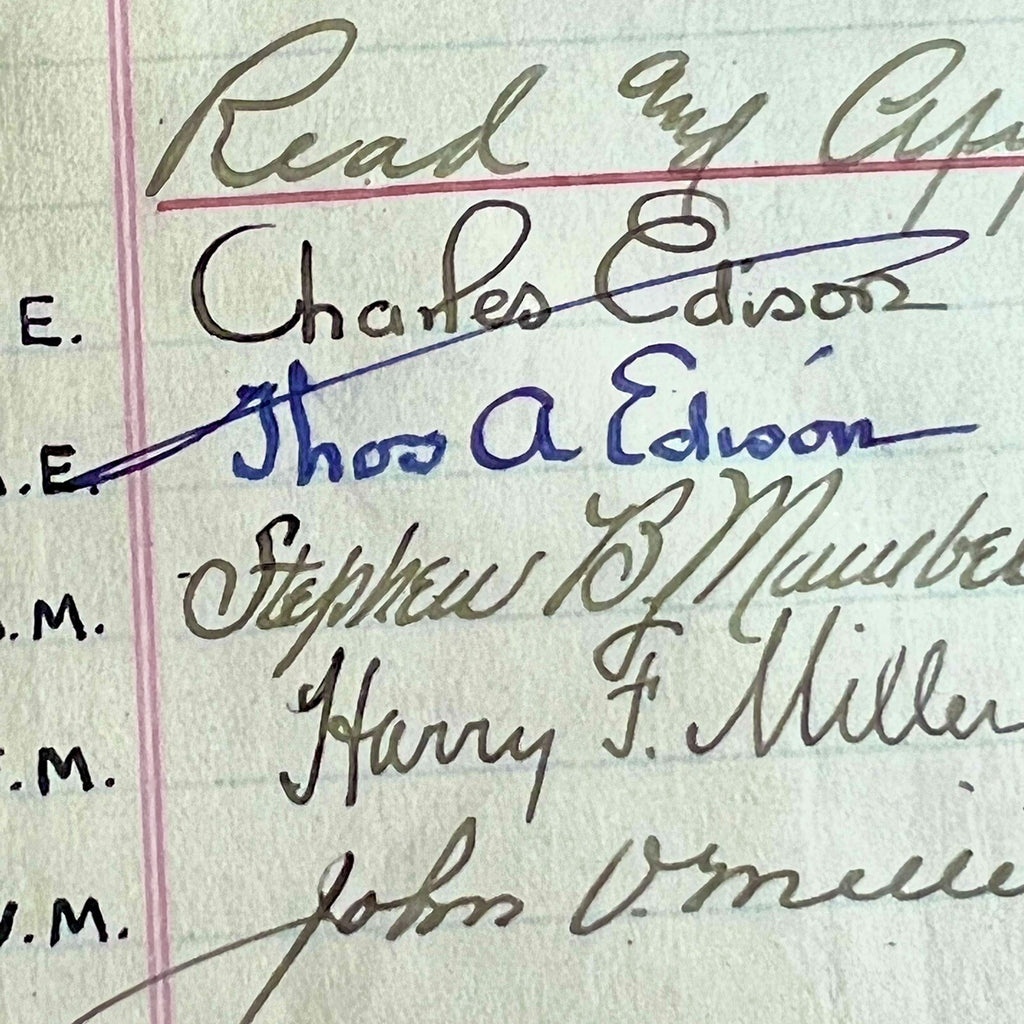 Read and App
E. Charles Edison
A.E. Thos A Edison
B.M. Stephen B. Mambe
F.M. Harry F. Miller
V.M. John V. Mille